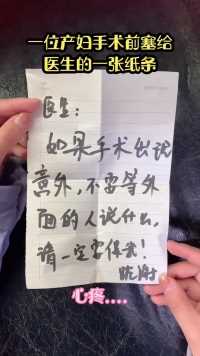 一位产妇手术前塞给
医生的一张纸条
医生：
如果手术出现
意外，不要等外
面的人说什么，
请一定要保我！
心疼....